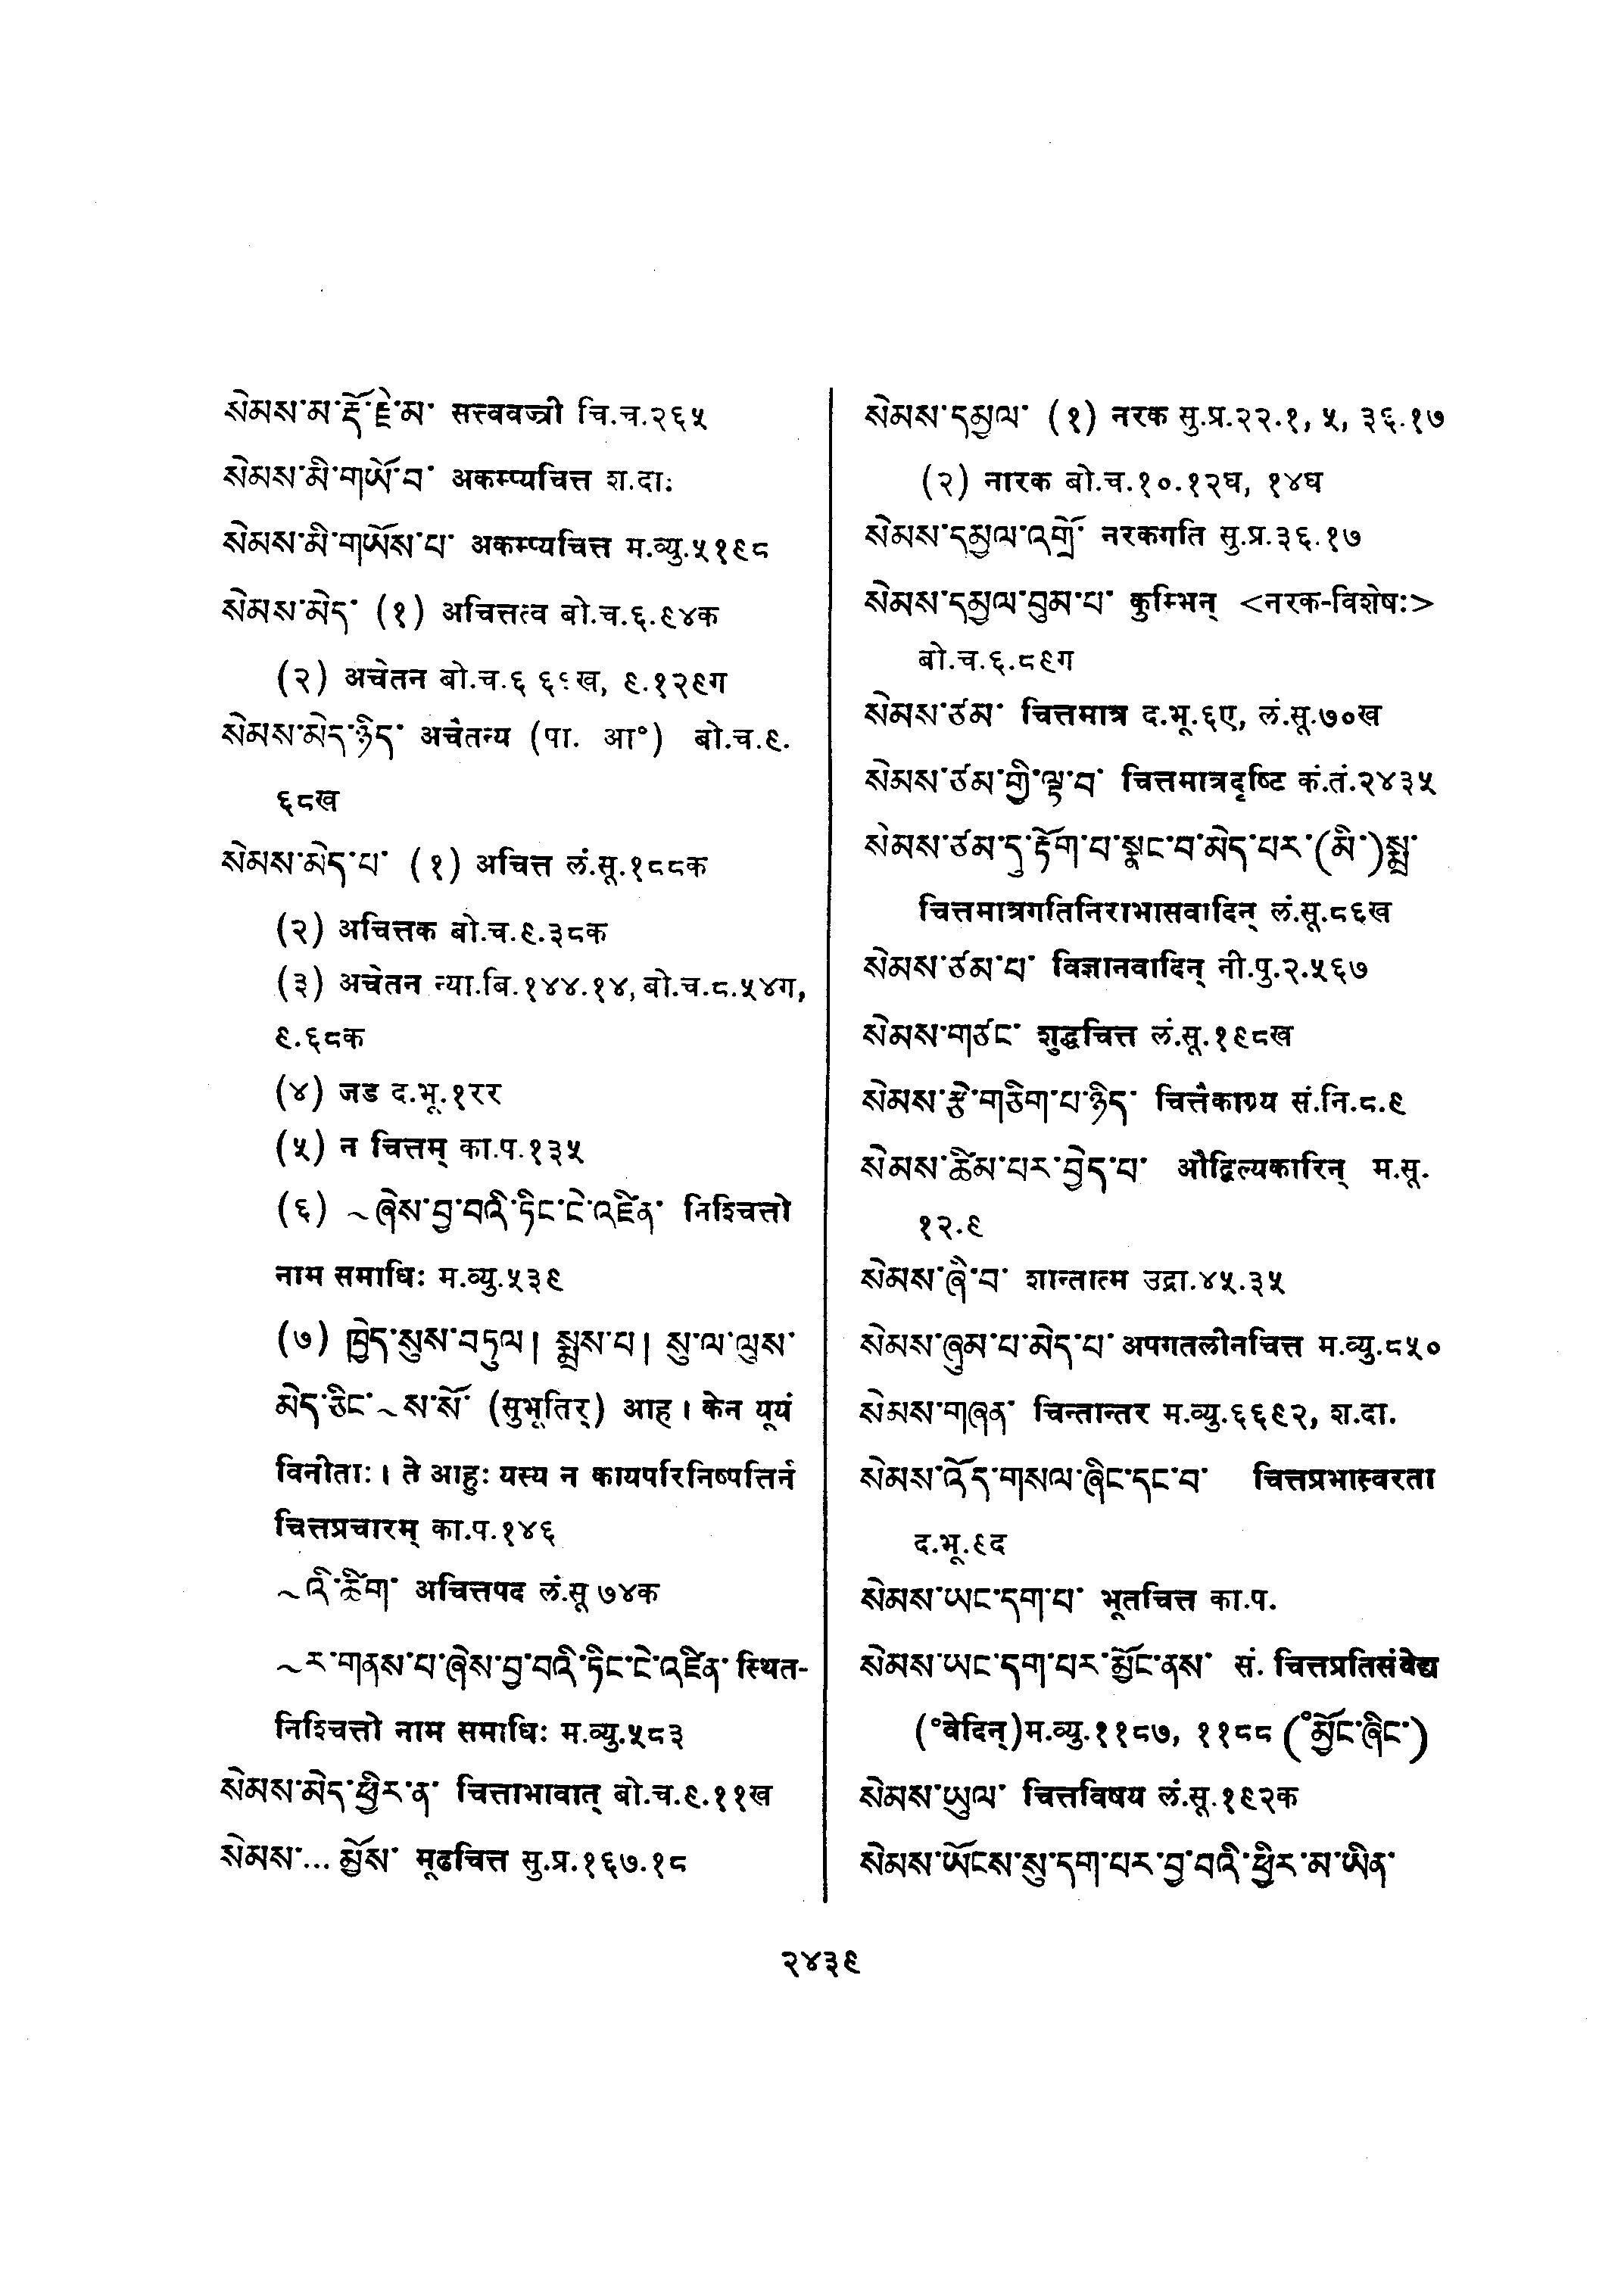 སེམས་མ་རྡོ་རྗེ་མ་ सत्त्ववज्री चि.च.२६५
སེམས་མི་གཡོ་བ་ अकम्प्यचित्त श.दा:
སེམས་མི་གཡོས་པ་ अकम्प्यचित्त म.व्यु.५१९८
སེམས་མེད་ (१) अचित्तत्व बो.च.६.९४क
(२) अचेतन बो.च.६ ६९ख, ९.१२९ग
སེམས་མེད་ཉིད་ अचैतन्य (पा. आ°) बो.च.९.
६८ख
སེམས་མེད་པ་ (१) अचित्त लं.सू.१८८क
(२) अचित्तक बो.च.९.३८क
(३) अचेतन न्या.बि.१४४.१४, बो.च.८.५४ग,
९.६८क
(४) जड द.भू.१रर
(५) न चित्तम् का.प.१३५
(६) ~ཞེས་བྱ་བའི་ཏིང་ངེ་འཛིན་ निश्चित्तो
नाम समाधिः म.व्यु.५३९
(७) ཁྱེད་སུས་བཏུལ། སྨྲས་པ། སུ་ལ་ལུས་
མེད་ཅིང་~ས་སོ་ (सुभूतिर्) आह। केन यूयं
विनीताः। ते आहुः यस्य न कायपरिनिष्पत्तिर्न
चित्तप्रचारम् का.प.१४६
~འི་ཚིག་ अचित्तपद लं.सू ७४क
~ར་གནས་པ་ཞེས་བྱ་བའི་ཏིང་ངེ་འཛིན་ स्थित-
निश्चित्तो नाम समाधिः म.व्यु.५८३
སེམས་མེད་ཕྱིར་ན་ चित्ताभावात् बो.च.९.११ख
སེམས་... མྱོས་ मूढचित्त सु.प्र.१६७.१८
སེམས་དམྱལ་ (१) नरक सु.प्र.२२.१, ५, ३६.१७
(२) नारक बो.च.१०.१२घ, १४घ
སེམས་དམྱལ་འགྲོ་ नरकगति सु.प्र.३६.१७
སེམས་དམྱལ་བུམ་པ་ कुम्भिन् <नरक-विशेषः>
बो.च.६.८९ग
སེམས་ཙམ་ चित्तमात्र द.भू.६ए, लं.सू.७०ख
སེམས་ཙམ་གྱི་ལྟ་བ་ चित्तमात्रदृष्टि कं.तं.२४३५
སེམས་ཙམ་དུ་རྟོག་པ་སྣང་བ་མེད་པར་(མི་)སྨྲ་
चित्तमात्रगतिनिराभासवादिन् लं.सू.८६ख
སེམས་ཙམ་པ་ विज्ञानवादिन् नी.पु.२.५६७
སེམས་གཙང་ शुद्धचित्त लं.सू.१९८ख
སེམས་རྩེ་གཅིག་པ་ཉིད་ चित्तैकाग्र्य सं.नि.८.९
སེམས་ཚིམ་པར་བྱེད་པ་ औद्विल्यकारिन् म.सू.
१२.९
སེམས་ཞི་བ་ शान्तात्म उद्रा.४५.३५
སེམས་ཞུམ་པ་མེད་པ་ अपगतलीनचित्त म.व्यु.८५०
སེམས་གཞན་ चिन्तान्तर म.व्यु.६६९२, श.दा.
སེམས་འོད་གསལ་ཞིང་དང་བ་ चित्तप्रभास्वरता
द.भू.९द
སེམས་ཡང་དག་པ་ भूतचित्त का.प.
སེམས་ཡང་དག་པར་མྱོང་ནས་ सं. चित्तप्रतिसंवेद्य
(°वेदिन्)म.व्यु.११८७, ११८८ (°མྱོང་ཞིང་)
སེམས་ཡུལ་ चित्तविषय लं.सू.१९२क
སེམས་ཡོངས་སུ་དག་པར་བྱ་བའི་ཕྱིར་མ་ཡིན་
२४३९